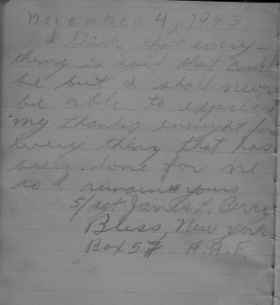 November 4, 1943
I think that every-
thing is said that could
be but I shall never
be able to express
my thanks enought for
every thing that has
been done for me
so I remain yours
S/sgt James L.
Bliss, New York
Box 57 A.A.F.